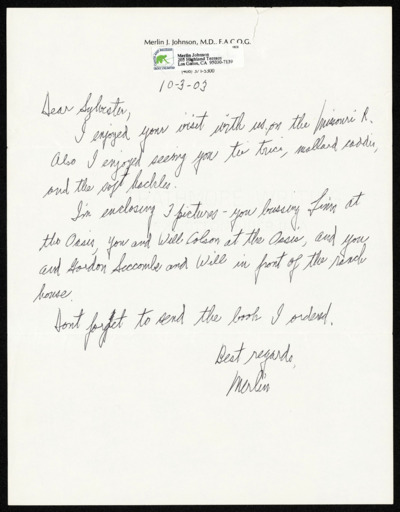 Merlin J. Johnson, M.D., F.A.C.O.G.
Merlin Johnson
Highland Terrace
Los Gatos, CA 95030-7139
10-3-03
Dear Sylvester,
I enjoyed your visit with us on the Missouri R.
Also I enjoyed seeing you tie trico, mallard caddis,
and the soft hackles.
I'm enclosing 3 pictures - you kissing Finn at
the Oasis, you and Will Colson at the Oasis, and you
and Gordon Seccombe and Will in front of the ranch
house.
Dont forget to send the book I ordered.
Best regards,
Merlin